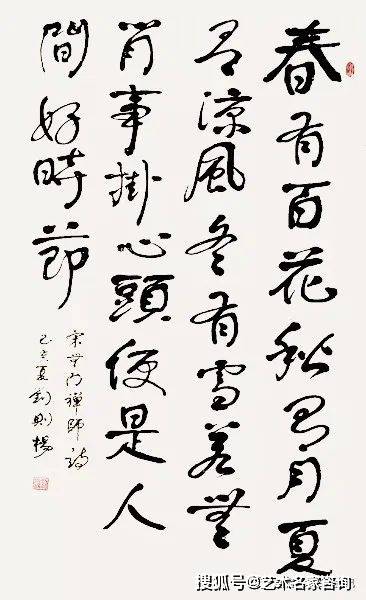 春有百花秋有月夏
有涼風冬有雪若無
閒事掛心頭便是人
間好時節
宋無门禪師詩
己亥夏劉則楊
搜狐号@艺术名家咨询